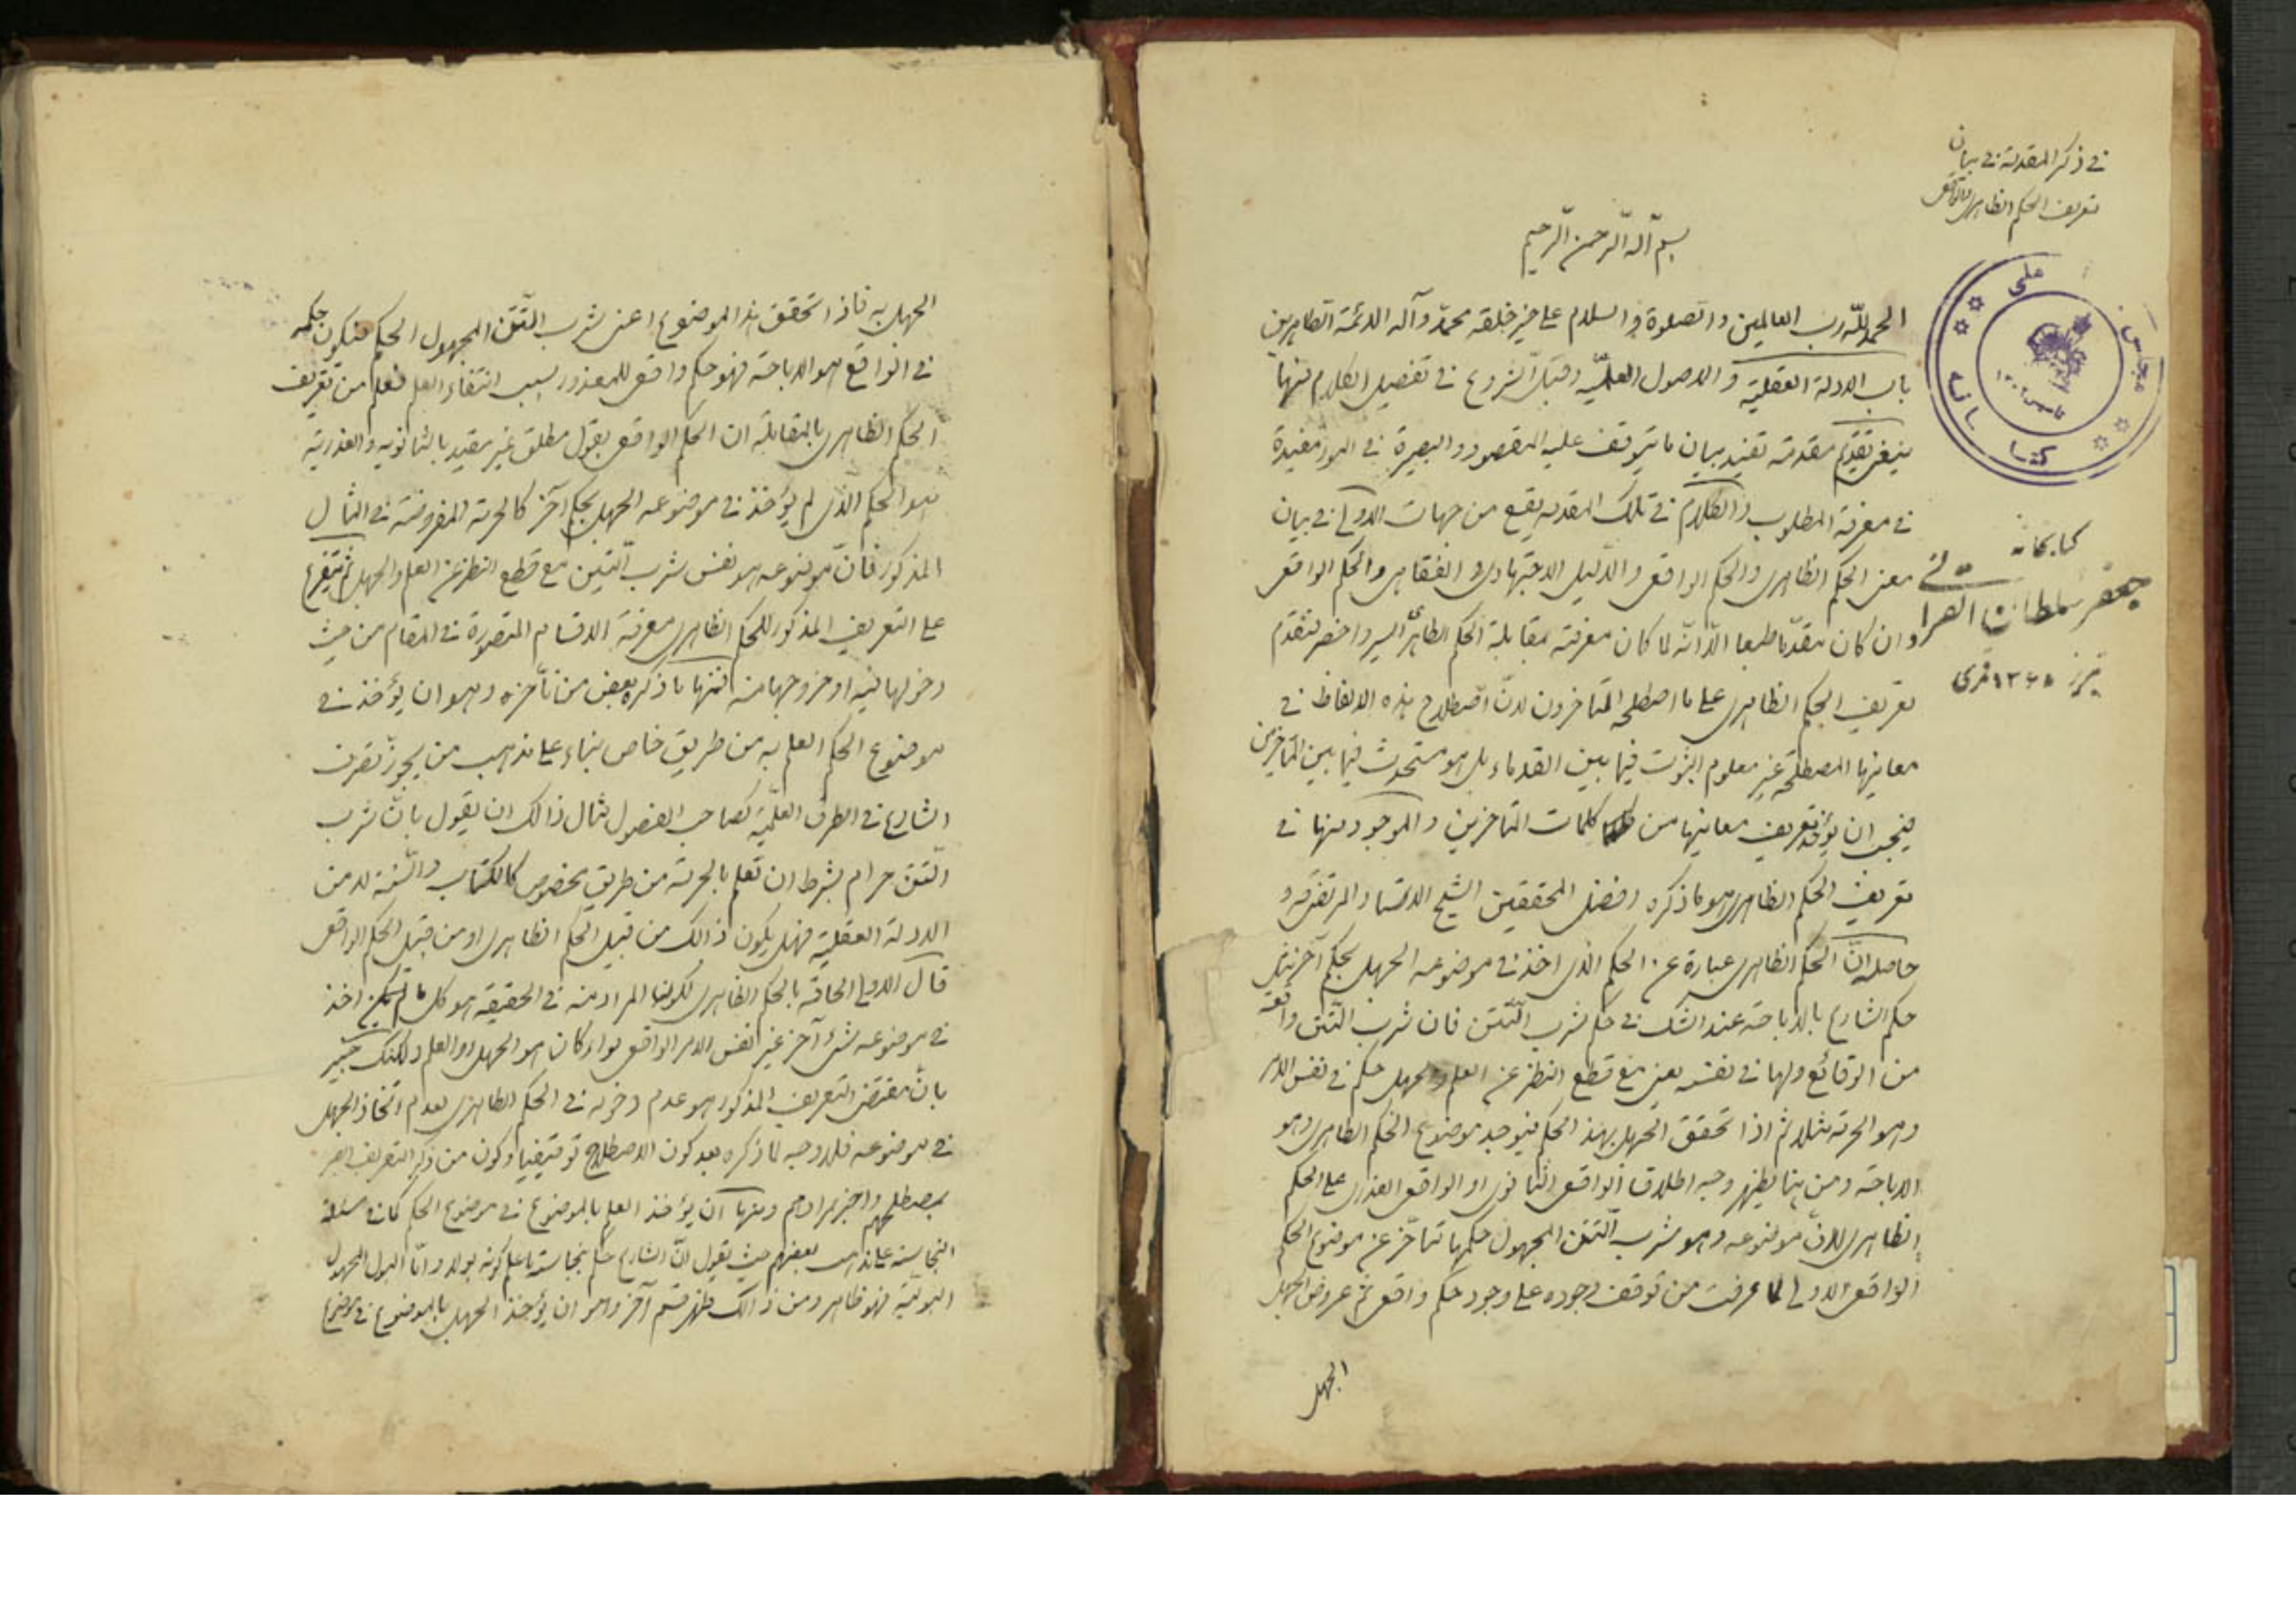 في ذكر المقدمة في بيان
تعريف الحكم الظاهري والواقعي
بسم الله الرحمن الرحيم
الحمد لله رب العالمين والصلوة والسلام على خير خلقه محمد وآله الائمة الطاهرين
باب الادلة العقلية والاصول العمليّة وقبل الشروع في تفصيل الكلام فيها
ينبغي تقديم مقدمة تفيد بيان ما يتوقف عليه المقصود والبصيرة في امور مفيدة
في معرفة المطلوب والكلام في تلك المقدمة يقع من جهات الاولى في بيان
معنى الحكم الظاهري والحكم الواقعي والدليل الاجتهادي والفقاهي والحكم الواقعي
وان كان مقدّما طبعا الّا انّه لما كان معرفته بمقابلة الحكم الظاهري ايسر واخصر فنقدّم
تعريف الحكم الظاهري على ما اصطلحه المتاخرون لانّ اصطلاح هذه الالفاظ في
معانيها المصطلحة غير معلوم الثبوت فيما بين القدماء بل هو مستحدث فيما بين المتأخرين
فيجب ان يؤخذ تعريف معانيها من كلمات المتاخرين والموجود منها في
تعريف الحكم الظاهري هو ما ذكره افضل المحققين الشيخ الاستاد المرتضى قده و
حاصله انّ الحكم الظاهري عبارة عن الحكم الذي اخذ في موضوعه الجهل بحكم آخر مثل
حكم الشارع بالاباحة عند الشك في حكم شرب التّتن فان شرب التّتن واقعة
من الوقائع ولها في نفسه يعني مع قطع النظر عن العلم والجهل حكم في نفس الامر
وهو الحرمة مثلا ثم اذا تحقق الجهل بهذا الحكم فيوجد موضوع الحكم الظاهري وهو
الاباحة ومن هنا يظهر وجه اطلاق الواقعي الثانوي او الواقعي العذري على الحكم
الظاهري لان موضوعه وهو شرب التتن المجهول حكمها متأخّر عن موضوع الحكم
الواقعي الاولي لما عرفت من توقف وجوده على وجود حكم واقعي ثم عروض الجهل
الجهل
مجلس
على
كتا
كتابخانه
جعفر سلطان القرائى
تبريز ۱۳۶۸ قمرى
الجهل به فاذا تحقق هذا الموضوع اعني شرب التّتن المجهول الحكم فيكون حكمه
في الواقع هو الاباحة فهو حكم واقعي للمعذور بسبب انتفاء العلم فعلم من تعريف
الحكم الظاهري بالمقابلة ان الحكم الواقعي بقول مطلق غير مقيد بالثانوية والعذرية
هو الحكم الذي لم يؤخذ في موضوعه الجهل بحكم آخر كالحرمة المفروضة في المثال
المذكور فانّ موضوعه هو نفس شرب التتن مع قطع النظر عن العلم والجهل ثم يتفرع
على التعريف المذكور للحكم الظاهري معرفة الاقسام المتصورة في المقام من حيث
دخولها فيه او خروجها منه فمنها ما ذكره بعض من تأخره وهو ان يؤخذ في
موضوع الحكم العلم به من طريق خاص بناء على مذهب من يجوّز تصرف
الشارع في الطرق العلميّة كصاحب الفصول مثال ذالك ان يقول بان شرب
التتن حرام بشرط ان تعلم بالحرمة من طريق مخصوص كالكتاب والسّنة لا من
الادلة العقلية فهل يكون ذالك من قبيل الحكم الظاهري او من قبيل الحكم الواقعي
قال الاولى الحاقه بالحكم الظاهري لكون المراد منه في الحقيقة هو كل ما اخذ
في موضوعه شئ آخر غير نفس الامر الواقعي سواء كان هو الجهل او العلم ولكنك خبير
بان مقتضى التعريف المذكور هو عدم دخوله في الحكم الظاهري لعدم اتخاذ الجهل
في موضوعه فلا وجه لما ذكره بعد كون الاصطلاح توقيفيا وكون من ذكر التعريف اخبر
بمصطلحهم واخبر بمرادهم ومنها ان يؤخذ العلم بالموضوع في موضوع الحكم كما في مسئلة
النجاسة على مذهب بعضهم حيث يقول انّ الشارع حكم بنجاسة ما علم كونه بولا وامّا البول المجهول
البوليّة فهو طاهر ومن ذالك يظهر قسم آخر وهو ان يؤخذ الجهل بالموضوع في موضوع